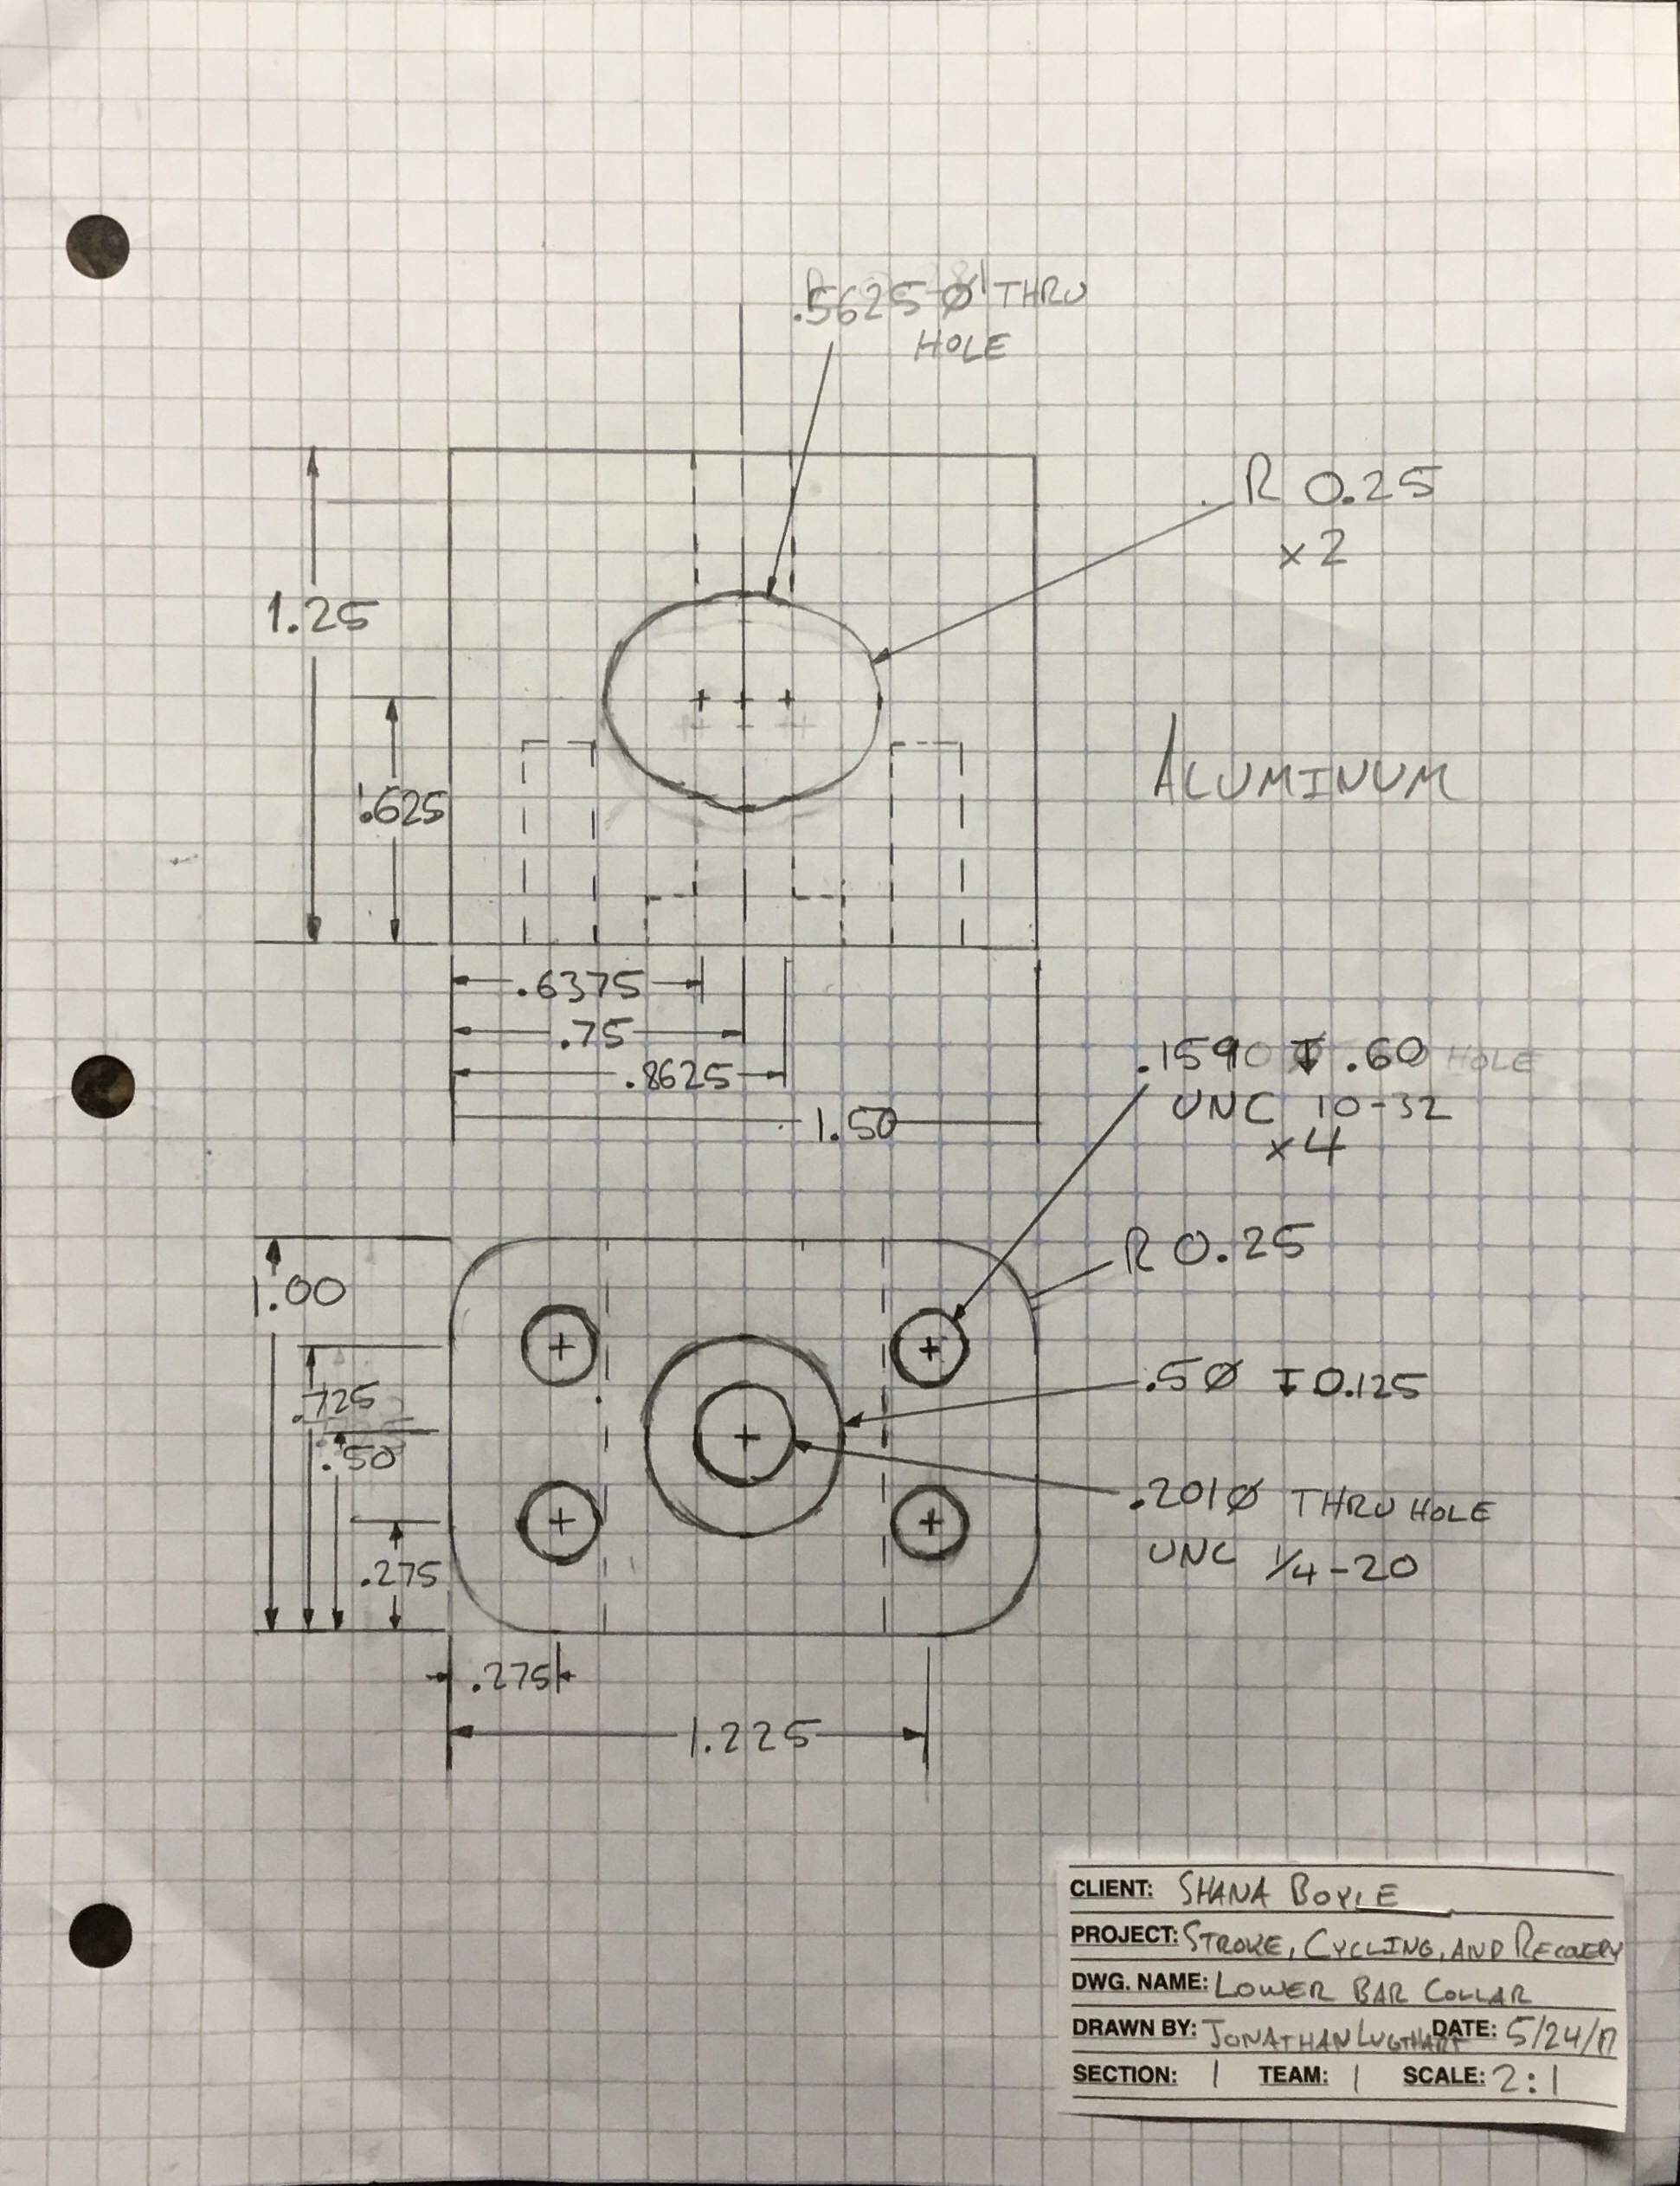 .5625 Ø THRU
HOLE
R 0.25
x2
1.25
.625
ALUMINUM
.6375
.75
.8625
1.50
.1590 ↧ .60 HOLE
UNC 10-32
x4
R 0.25
1.00
.725
.50
.275
.5Ø ↧ 0.125
.201Ø THRU HOLE
UNC 1/4-20
.275
1.225
CLIENT: SHANA BOYLE
PROJECT: STROKE, CYCLING, AND RECOVERY
DWG. NAME: LOWER BAR COLLAR
DRAWN BY: JONATHAN LUGTHART DATE: 5/24/17
SECTION: 1 TEAM: 1 SCALE: 2:1